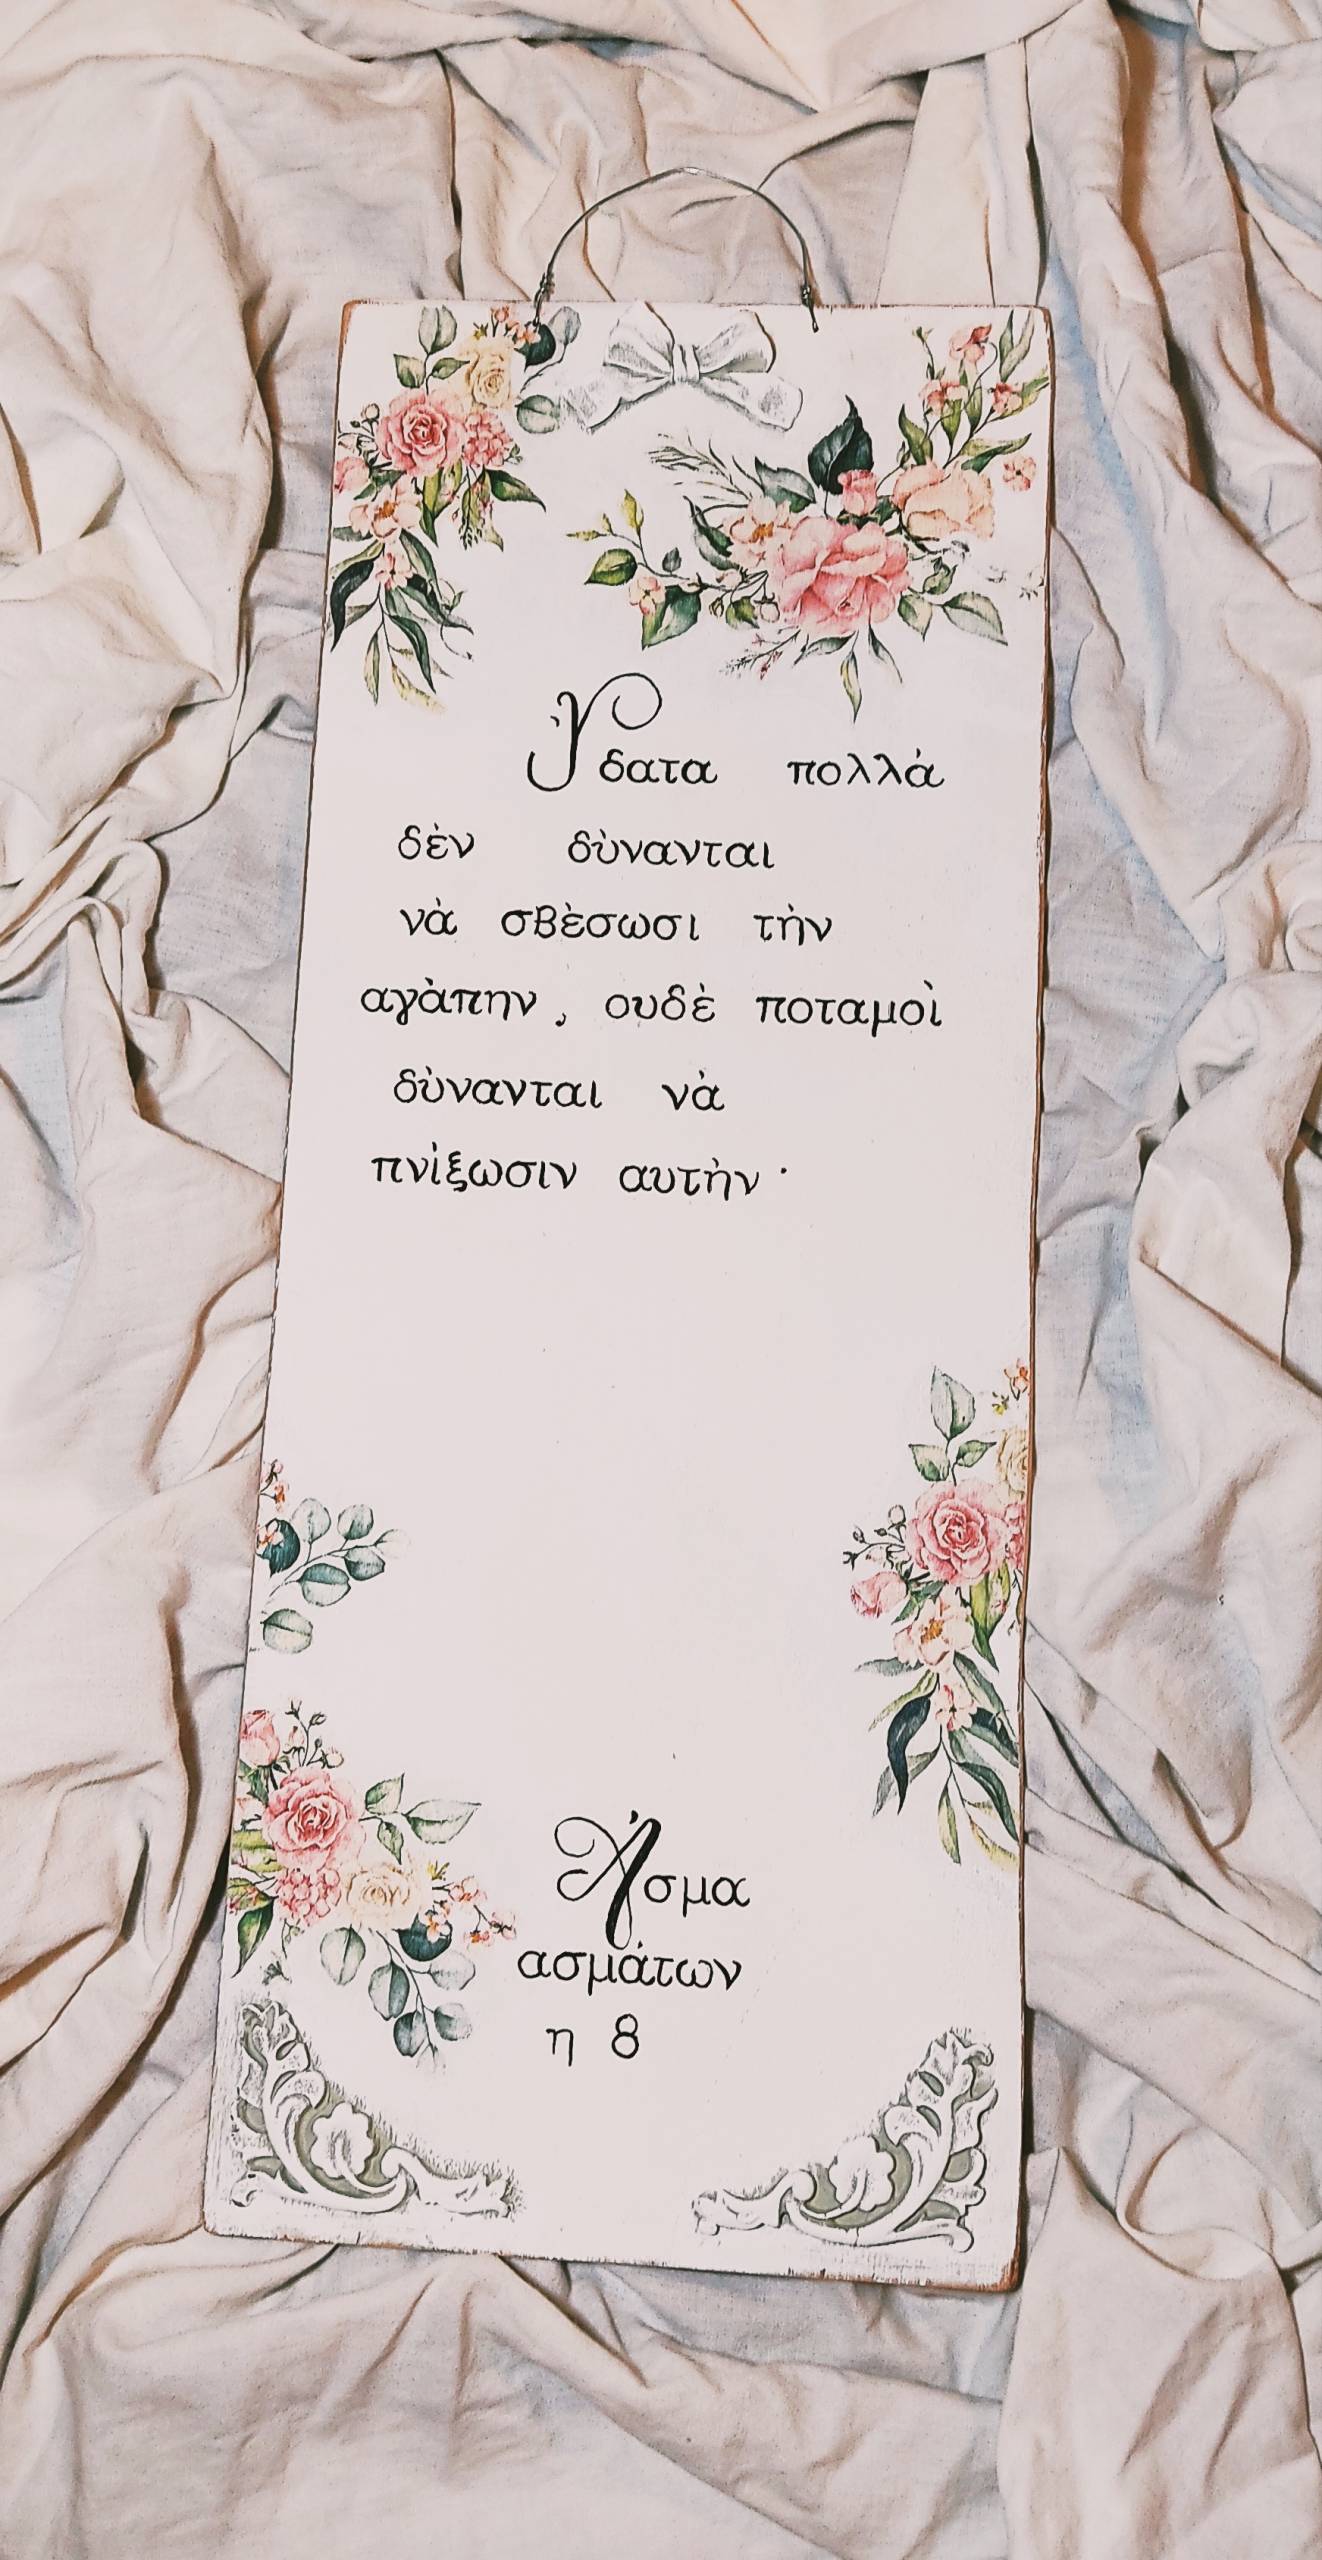 Ὑδατα πολλὰ
δὲν δὺνανται
νὰ σβὲσωσι τὴν
αγὰπην, ουδὲ ποταμοὶ
δὺνανται νὰ
πνὶξωσιν αυτὴν·
Ἀσμα
ασμάτων
η 8